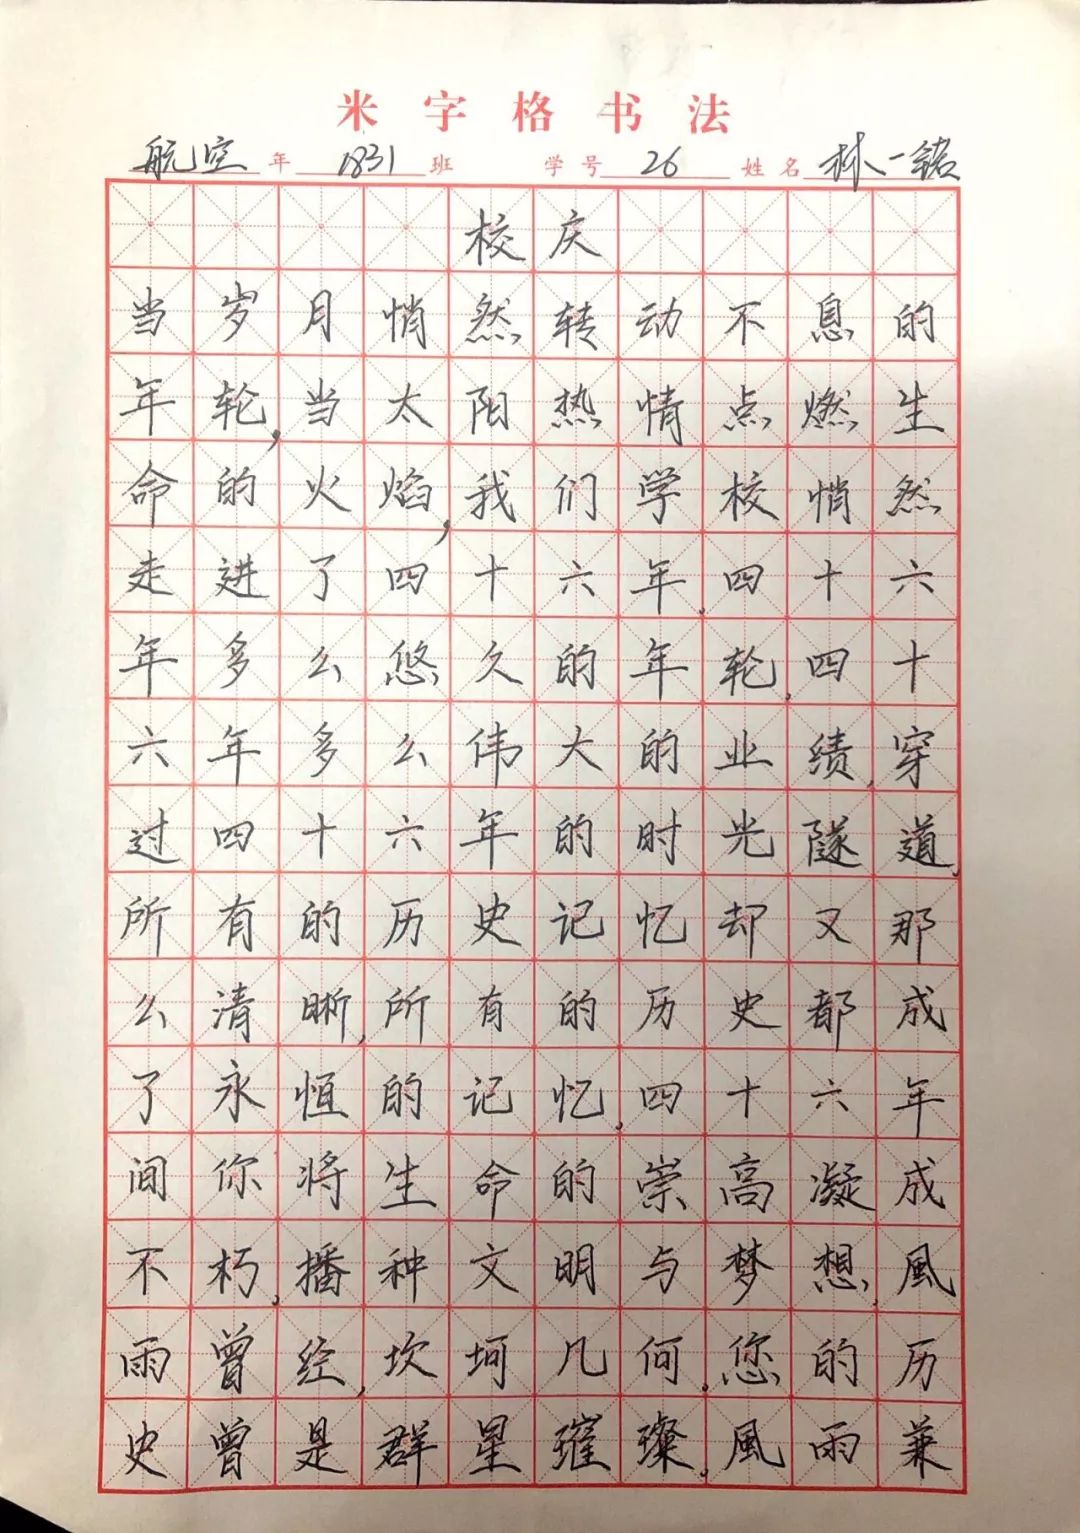 米字格书法
航空年1831班 学号26 姓名林一锘
校庆
当岁月悄然转动不息的
年轮,当太阳热情点燃生
命的火焰,我们学校悄然
走进了四十六年,四十六
年多么悠久的年轮,四十
六年多么伟大的业绩,穿
过四十六年的时光隧道,
所有的历史记忆却又那
么清晰,所有的历史都成
了永恒的记忆,四十六年
间你将生命的崇高凝成
不朽,播种文明与梦想,風
雨曾经,坎坷几何,您的历
史曾是群星璀璨,風雨兼